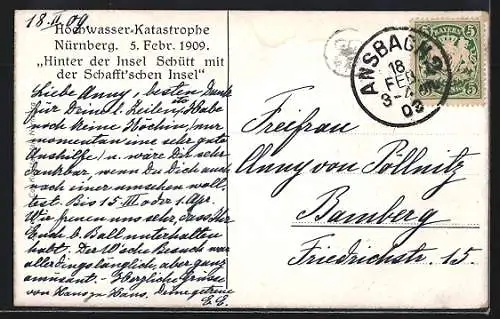 18.II.09
Hochwasser-Katastrophe
Nürnberg. 5. Febr. 1909.
„Hinter der Insel Schütt mit
der Schafft'schen Insel"
Liebe Anny, besten Dank
für Deine l. Zeilen, habe
noch keine Köchin, nur
momentan eine sehr gute
Aushilfe u. wäre Dir sehr
dankbar, wenn Du Dich auch
noch einer umsehen woll-
test. Bis 15. III oder 1. Apr.
Wir freuen uns sehr, dass Ihr
Euch b. Ball unterhalten
habt. Der Besuch war
allerdings länglich, aber ganz
amusant. - Herzliche Grüsse
von Haus zu Haus. Deine getreue
E.E.
BAYERN
5 5
ANSBACH 2
18
FEB
3-4
09
Freifrau
Anny von Pöllnitz
Bamberg
Friedrichstr. 15.